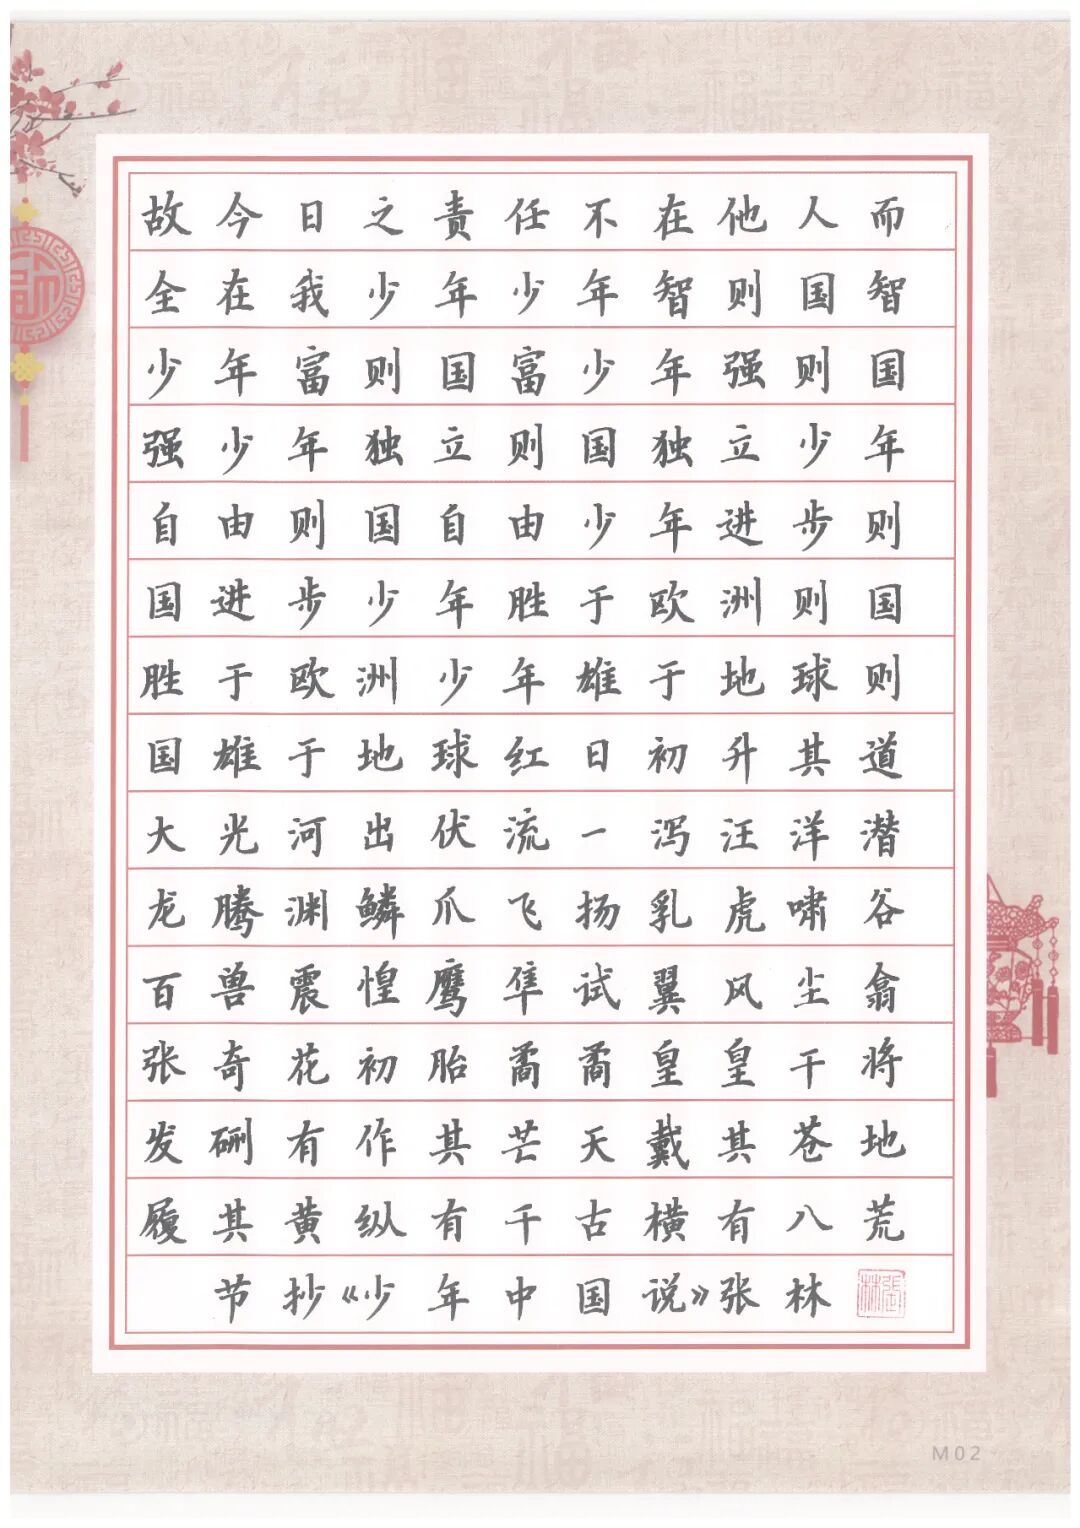 故今日之责任不在他人而
全在我少年少年智则国智
少年富则国富少年强则国
强少年独立则国独立少年
自由则国自由少年进步则
国进步少年胜于欧洲则国
胜于欧洲少年雄于地球则
国雄于地球红日初升其道
大光河出伏流一泻汪洋潜
龙腾渊鳞爪飞扬乳虎啸谷
百兽震惶鹰隼试翼风尘翕
张奇花初胎矞矞皇皇干将
发硎有作其芒天戴其苍地
履其黄纵有千古横有八荒
节抄《少年中国说》张林
張林
M02